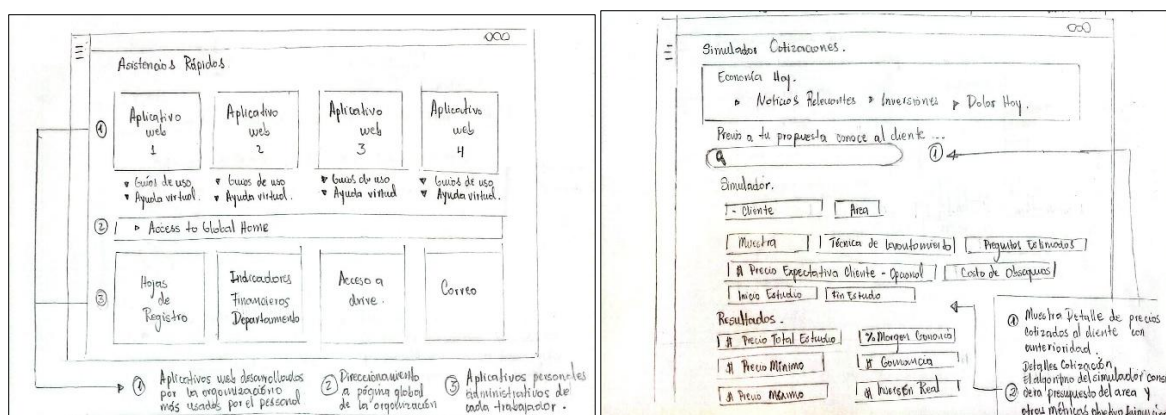 Asistencias Rápidas.
Aplicativo web 1
Aplicativo web 2
Aplicativo web 3
Aplicativo web 4
▾ Guías de uso
▾ Ayuda virtual.
▾ Guias de uso
▾ Ayuda virtual.
▾ Guías de uso
▾ Ayuda virtual
▾ Guías de uso
▾ Ayuda virtual.
② ▸ Access to Global Home
①
③
Hojas de Registro
Indicadores Financieros Departamento
Acceso a drive.
Correo
① Aplicativos web desarrollados
por la organización
más usados por el personal
② Direccionamiento
a página global
de la organización
③ Aplicativos personales
administrativos de
cada trabajador.
Simulador Cotizaciones.
Economía Hoy.
▸ Noticias Relevantes ▸ Inversiones ▸ Dolar Hoy.
Previo a tu propuesta conoce al cliente ...
①
Simulador.
- Cliente
Area
Muestra
Técnica de Levantamiento
Preguntas Estimadas
$ Precio Expectativa Cliente - Opcional
Costo de Obsequios
Inicio Estudio
Fin Estudio
Resultados.
$ Precio Total Estudio
% Margen Ganancia
$ Precio Mínimo
$ Ganancia
$ Precio Máximo
$ Inversión Real
① Muestra Detalle de precios
cotizados al cliente con
anterioridad.
Detalles Cotización
② el algoritmo del simulador consi
dera presupuesto del area y
otras métricas